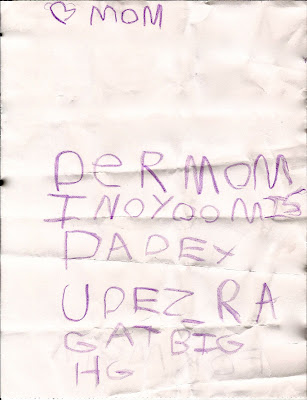 ♡ MOM
DER MOM
I NOYOOMIS
DADEY
UDEZ RA
GAT BIG
HG